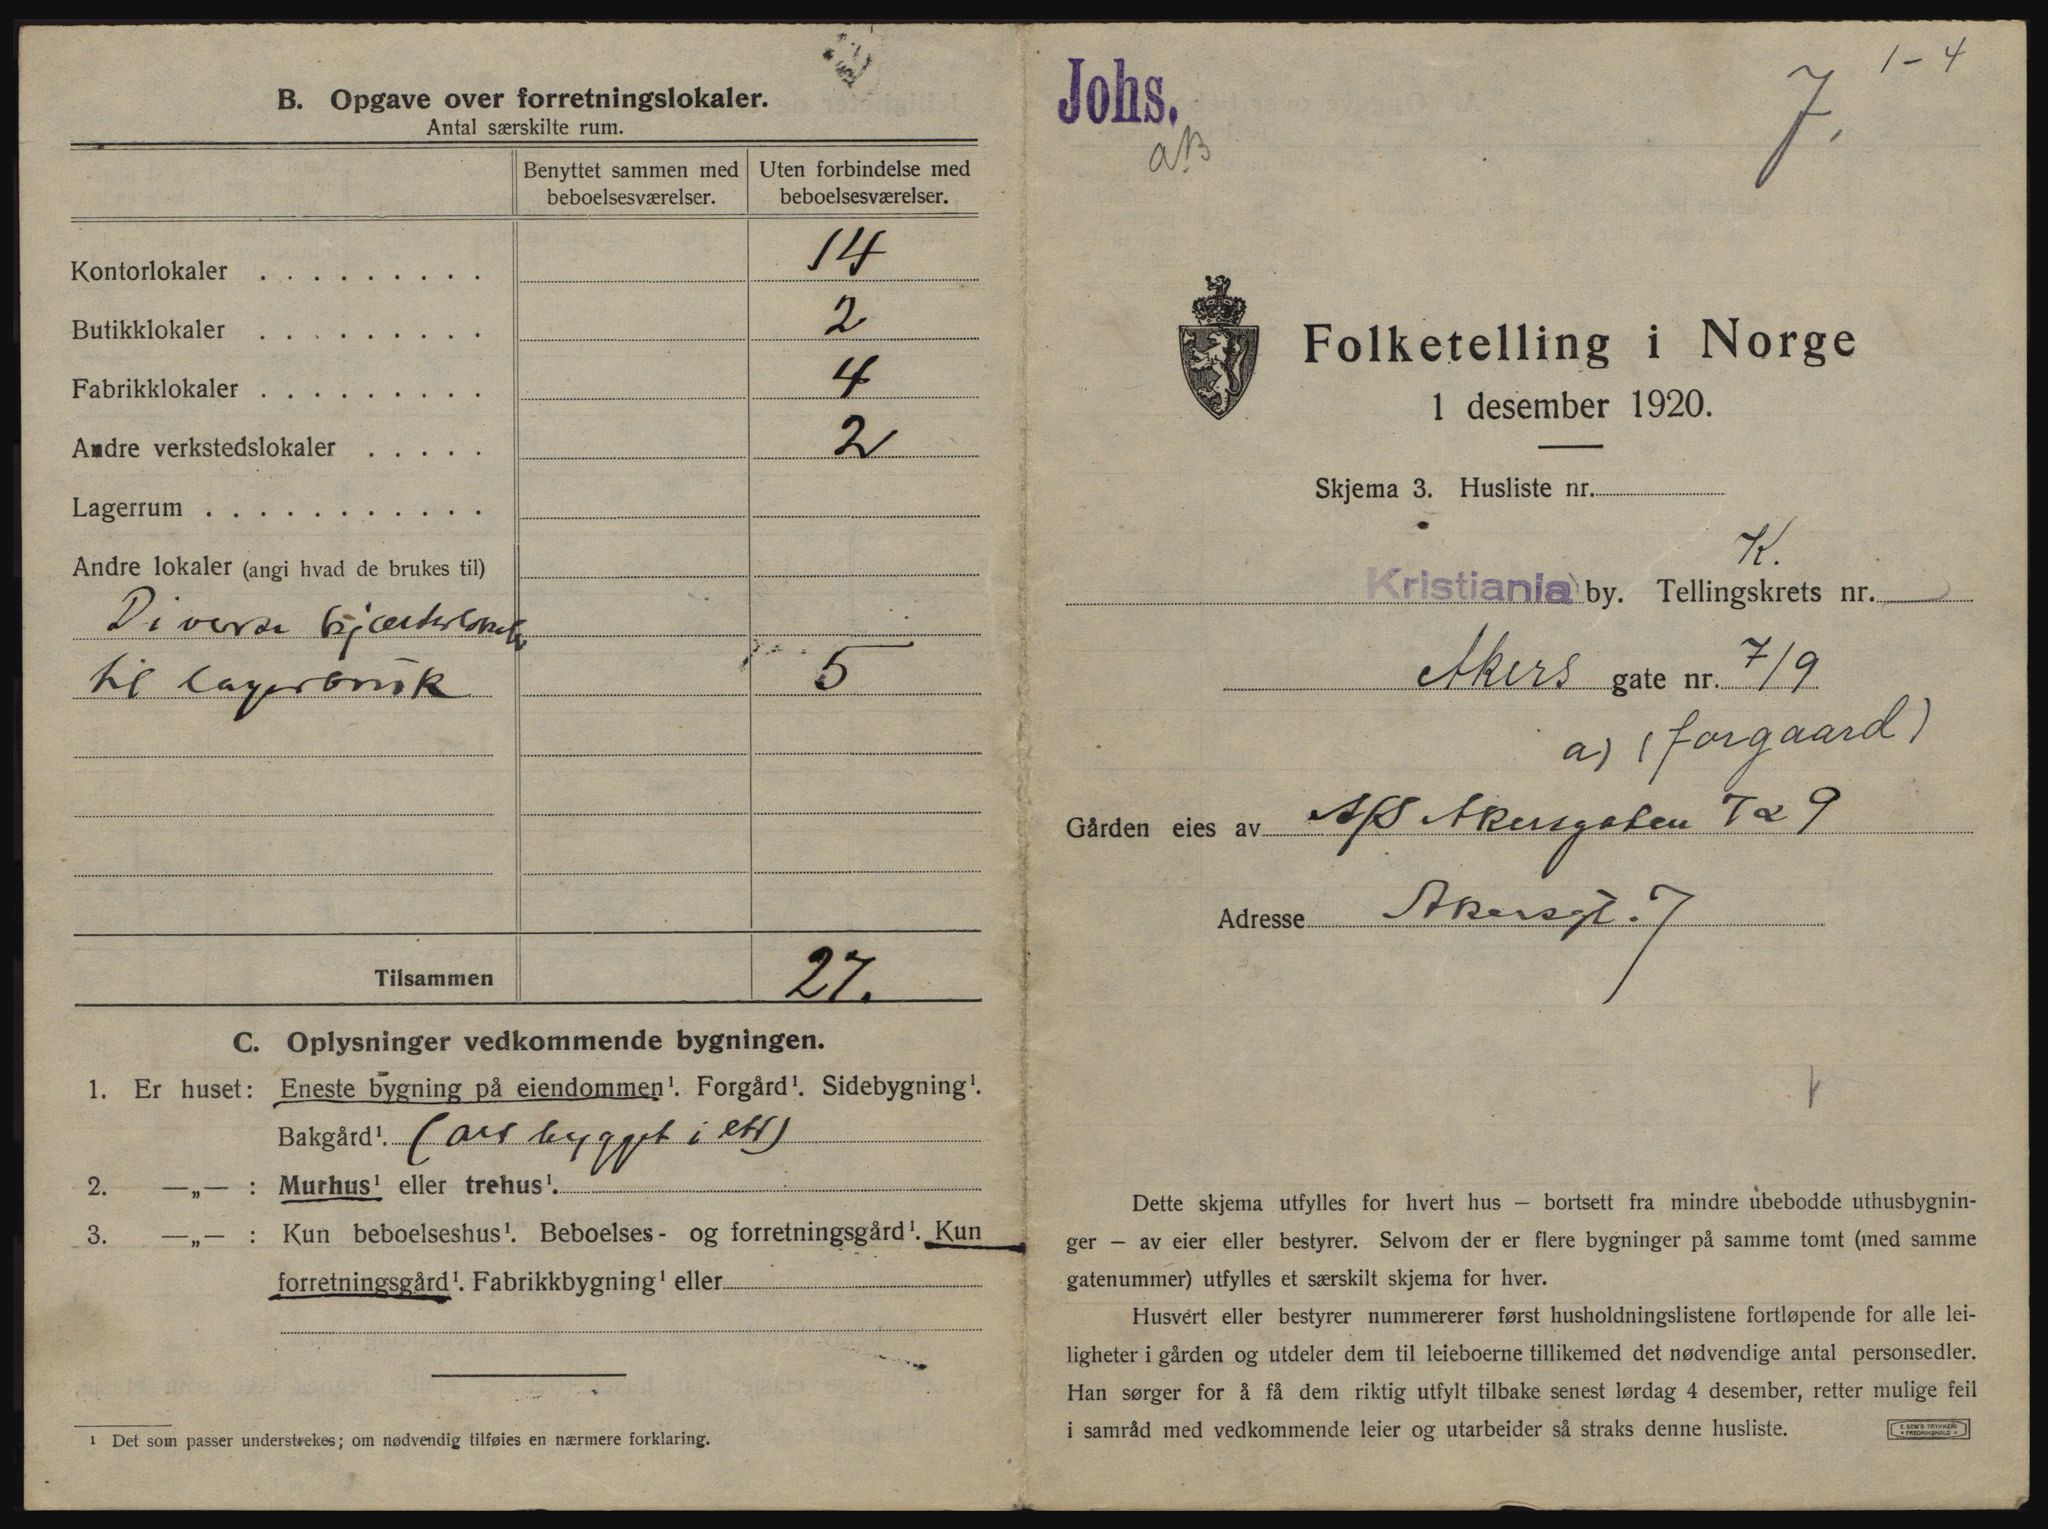 B. Opgave over forretningslokaler.
Antal særskilte rum.
Benyttet sammen med beboelsesværelser.
Uten forbindelse med beboelsesværelser.
Kontorlokaler . . . . . . . . . 14
Butikklokaler . . . . . . . . . 2
Fabrikklokaler . . . . . . . . . 4
Andre verkstedslokaler . . . . . 2
Lagerrum . . . . . . . . . . .
Andre lokaler (angi hvad de brukes til)
Diverse kjælderlokaler
til lagerbruk 5
Tilsammen 27.
C. Oplysninger vedkommende bygningen.
1. Er huset: Eneste bygning på eiendommen¹. Forgård¹. Sidebygning¹.
Bakgård¹. (Alt bygget i ett)
2. —„— : Murhus¹ eller trehus¹.
3. —„— : Kun beboelseshus¹. Beboelses- og forretningsgård¹. Kun
forretningsgård¹. Fabrikkbygning¹ eller
¹ Det som passer understrekes; om nødvendig tilføies en nærmere forklaring.
Johs.
aB
7.
1-4
Folketelling i Norge
1 desember 1920.
Skjema 3. Husliste nr.
K.
Kristiania by. Tellingskrets nr.
Akers gate nr. 7/9
a) (forgaard)
Gården eies av A/S Akersgaten 7 & 9
Adresse Akersgt. 7
Dette skjema utfylles for hvert hus – bortsett fra mindre ubebodde uthusbygnin-
ger – av eier eller bestyrer. Selvom der er flere bygninger på samme tomt (med samme
gatenummer) utfylles et særskilt skjema for hver.
Husvert eller bestyrer nummererer først husholdningslistene fortløpende for alle lei-
ligheter i gården og utdeler dem til leieboerne tillikemed det nødvendige antal personsedler.
Han sørger for å få dem riktig utfylt tilbake senest lørdag 4 desember, retter mulige feil
i samråd med vedkommende leier og utarbeider så straks denne husliste.
E. SEM'S TRYKKERI
FREDRIKSHALD